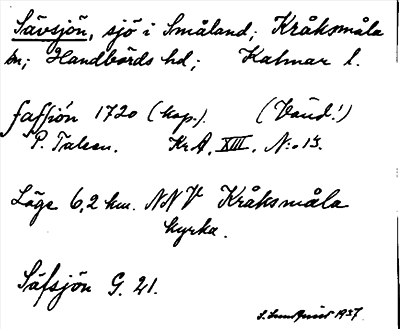 Sävsjön, sjö i Småland; Kråksmåla
sn; Handbörds hd; Kalmar l.
saffiön 1720 (kop.). (Vänd!)
KrA. XIII. N:o 13.
Läge 6,2 km. NNV Kråksmåla
kyrka.
Säfsjön G. 21.
1937.